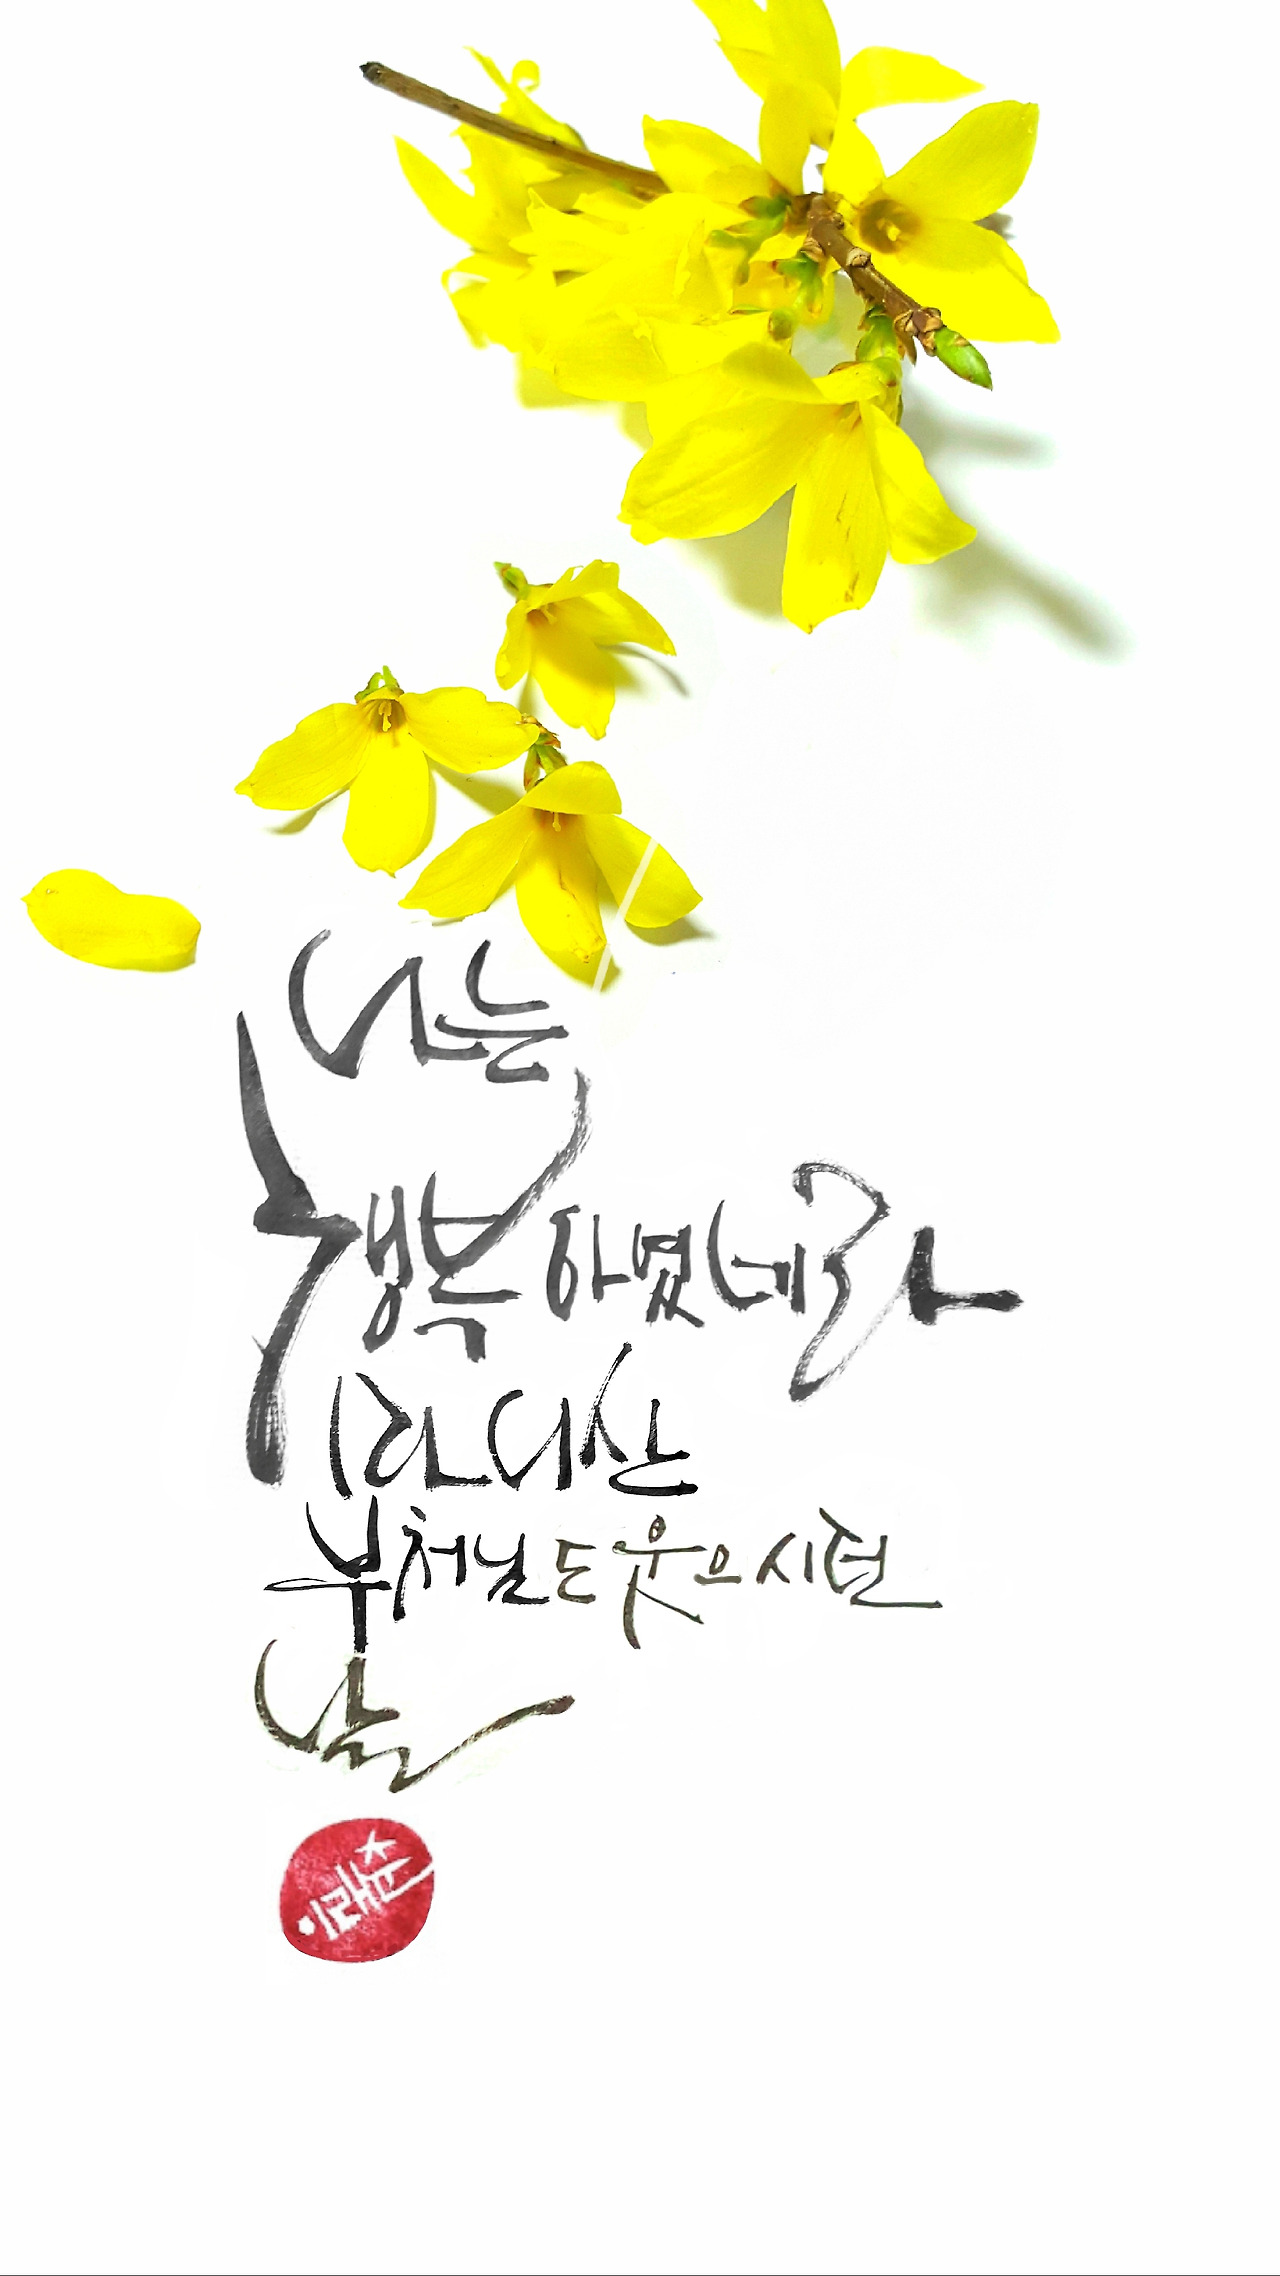 나는
행복하였네라
마니산
부처님도 웃으시던
날
이래춘